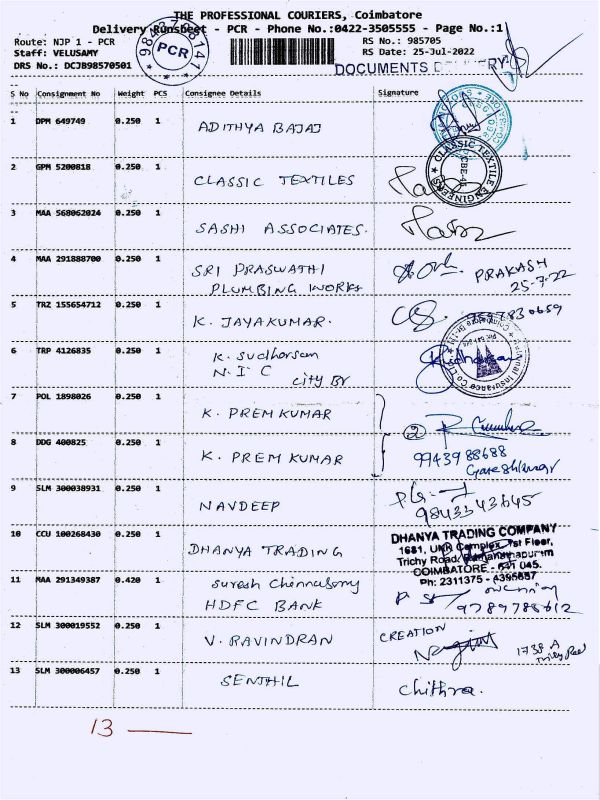 THE PROFESSIONAL COURIERS, Coimbatore
Delivery Runsheet - PCR - Phone No.:0422-3505555 - Page No.:1
Route: NJP 1 - PCR
RS No.: 985705
Staff: VELUSAMY
RS Date: 25-Jul-2022
DRS No.: DCJB98570501
PCR
DOCUMENTS
S No Consignment No Weight PCS Consignee Details Signature
1 DPM 649749 0.250 1 ADITHYA BAJAJ
2 GPM 5200818 0.250 1 CLASSIC TEXTILES
CLASSIC TEXTILE ENGINEERS
CBE-45
3 MAA 568062024 0.250 1 SASHI ASSOCIATES.
4 MAA 291888700 0.250 1 SRI PRASWATHI
PLUMBING WORKS
PRAKASH
25-7-22
5 TRZ 155654712 0.250 1 K. JAYAKUMAR.
6 TRP 4126835 0.250 1 K. Sudharsam
N.I C
City Br
7 POL 1898026 0.250 1 K. PREM KUMAR
8 DDG 400825 0.250 1 K. PREM KUMAR
2
9943988688
9 SLM 300038931 0.250 1 NAVDEEP
9843343645
10 CCU 100268430 0.250 1 DHANYA TRADING
DHANYA TRADING COMPANY
1681, UKR Complex, 1st Floor,
Trichy Road, Ramanathapuram
COIMBATORE - 641 045.
Ph: 2311375 - 4395657
11 MAA 291349387 0.420 1 Suresh Chinnasamy
HDFC BANK
9789788612
12 SLM 300019552 0.250 1 V. RAVINDRAN
CREATION
1738 A
13 SLM 300006457 0.250 1 SENTHIL
Chithra.
13